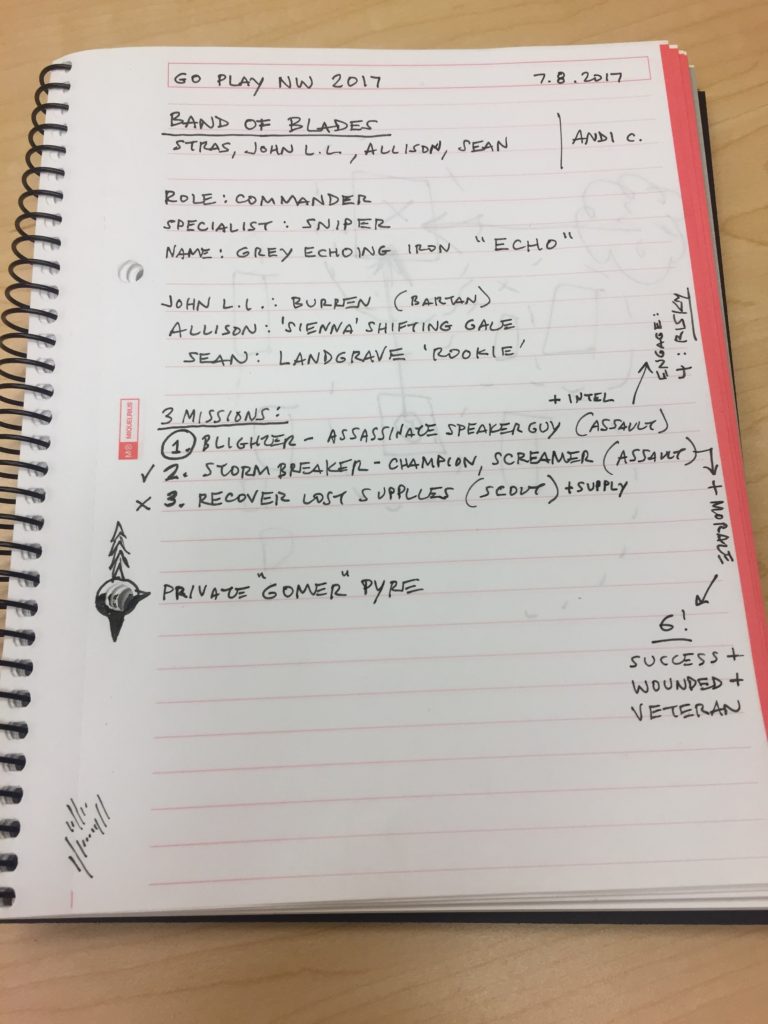 GO PLAY NW 2017 7.8.2017
BAND OF BLADES
STRAS, JOHN L.L., ALLISON, SEAN | ANDI C.
ROLE: COMMANDER
SPECIALIST: SNIPER
NAME: GREY ECHOING IRON "ECHO"
JOHN L.L.: BURREN (BARTAN)
ALLISON: 'SIENNA' SHIFTING GALE
SEAN: LANDGRAVE 'ROOKIE'
ENGAGE:
4: RISKY
+ INTEL
3 MISSIONS:
1. BLIGHTER - ASSASSINATE SPEAKER GUY (ASSAULT)
✓ 2. STORM BREAKER - CHAMPION, SCREAMER (ASSAULT)
X 3. RECOVER LOST SUPPLIES (SCOUT) + SUPPLY
+ MORALE
MIQUELRIUS
PRIVATE "GOMER" PYRE
6!
SUCCESS +
WOUNDED +
VETERAN